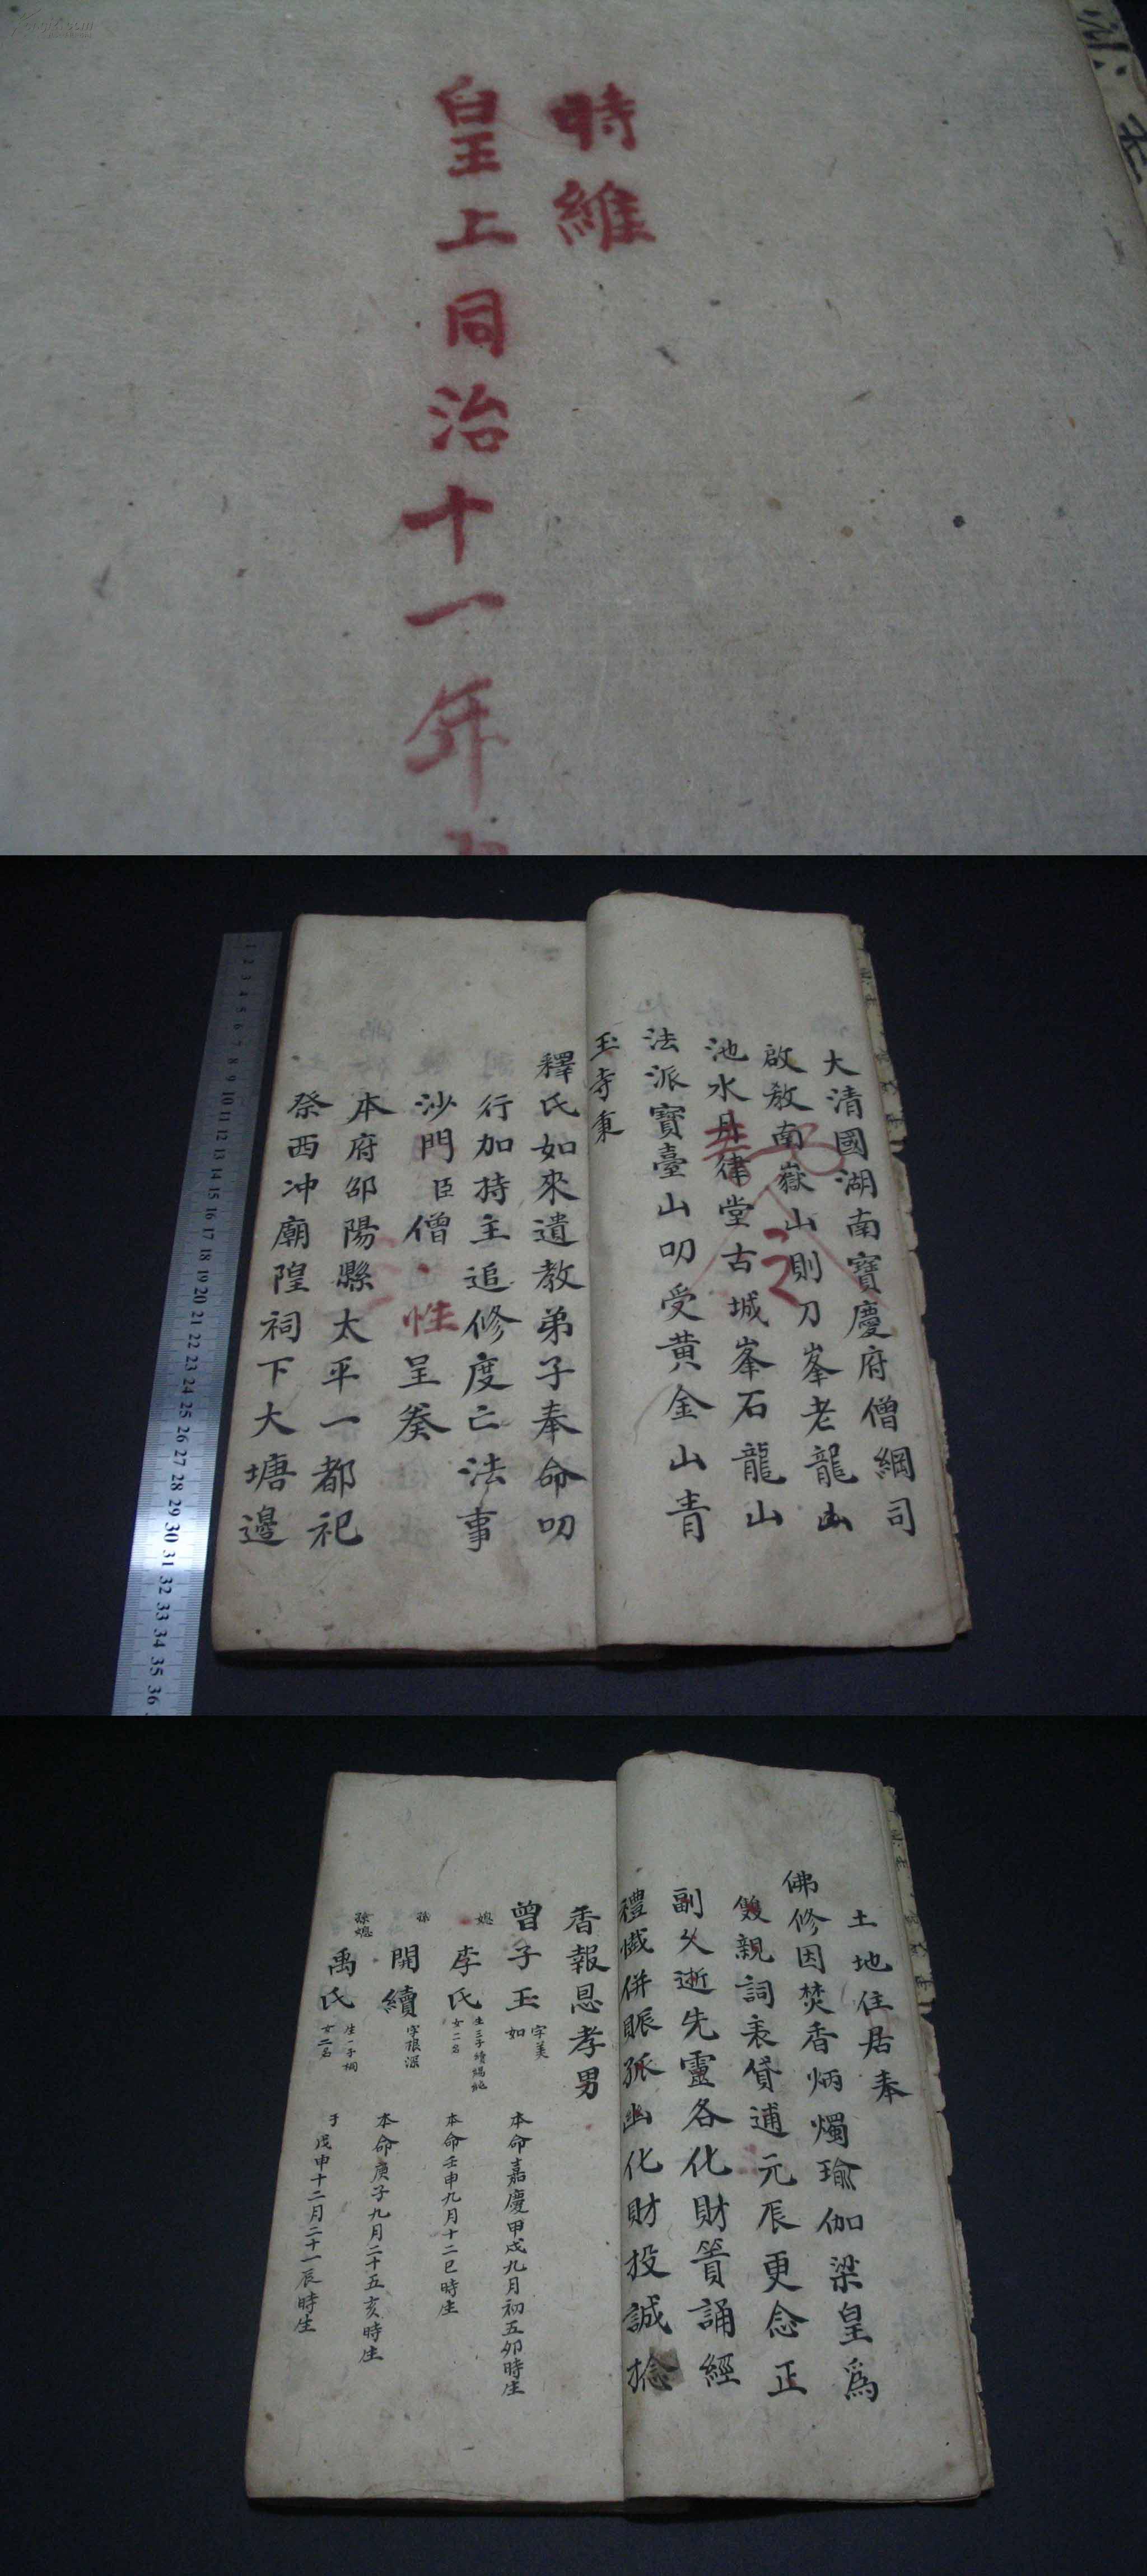 時維
皇上同治十一年
大清國湖南寶慶府僧綱司
啟教南嶽山則刀峯老龍山
池水月律堂古城峯石龍山
法派寶臺山叨受黄金山青
玉寺秉
釋氏如來遺教弟子奉命叨
行加持主追修度亡法事
沙門臣僧性呈葵
本府邵陽縣太平一都祀
祭西冲廟隍祠下大塘邊
土地住居奉
佛修因焚香炳燭瑜伽梁皇爲
雙親詞表貸逋元辰更念正
副久逝先靈各化財篢誦經
禮懺併賑孤幽化財投誠捻
香報恩孝男
曾子玉如 字美 本命嘉慶甲戌九月初五卯時生
媳 李氏 生三子續 女二名 本命壬申九月十二巳時生
孫 開續 字根深 本命庚子九月二十五亥時生
孫媳 禹氏 生一子桐 女二名 于戊申十二月二十一辰時生
1 2 3 4 5 6 7 8 9 10 11 12 13 14 15 16 17 18 19 20 21 22 23 24 25 26 27 28 29 30 31 32 33 34 35 36